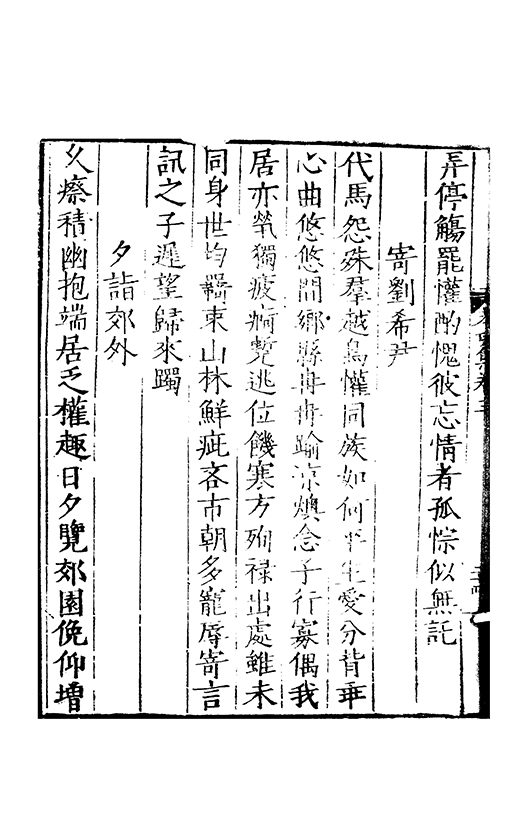 弄停觴罷懽酌愧彼忘情者孤悰似無託
寄劉希尹
代馬怨殊羣越鳥懽同族如何平生愛分背乖
心曲悠悠間鄉縣冉冉踰涼燠念子行寡偶我
居亦煢獨疲痾慙逃位饑寒方殉祿出處雖未
同身世均羈束山林鮮疵吝市朝多寵辱寄言
訊之子遲望歸來躅
夕詣郊外
久瘵積幽抱端居乏權趣日夕覽郊園俛仰增